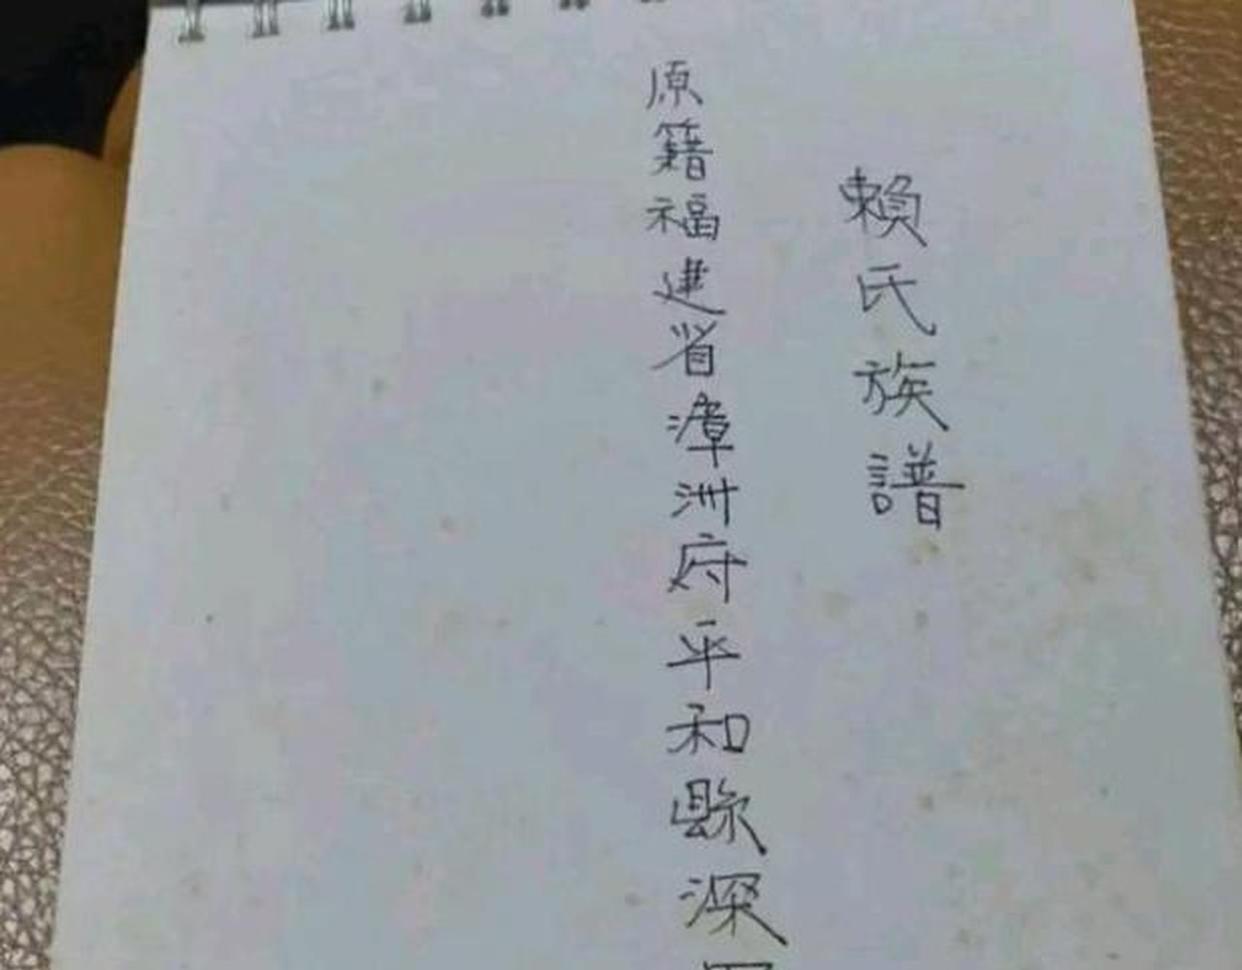 賴氏族譜
原籍福建省漳洲府平和縣深